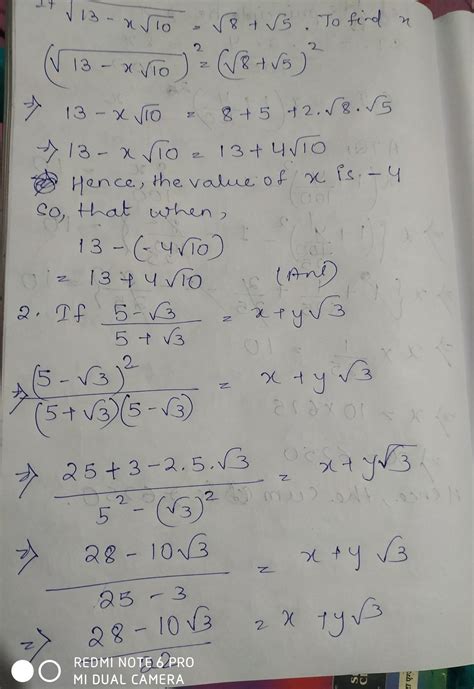 If √13 - x√10 = √8 + √5. To find x
(√13 - x√10)² = (√8 + √5)²
⇒ 13 - x√10 = 8 + 5 + 2.√8.√5
⇒ 13 - x√10 = 13 + 4√10
Hence, the value of x is -4
So, that when,
13 - (-4√10)
= 13 + 4√10 (Ans)
2. If (5 - √3)/(5 + √3) = x + y√3
⇒ (5 - √3)²/((5 + √3)(5 - √3)) = x + y√3
⇒ (25 + 3 - 2.5.√3)/(5² - (√3)²) = x + y√3
⇒ (28 - 10√3)/(25 - 3) = x + y√3
⇒ (28 - 10√3)/22 = x + y√3
REDMI NOTE 6 PRO
MI DUAL CAMERA